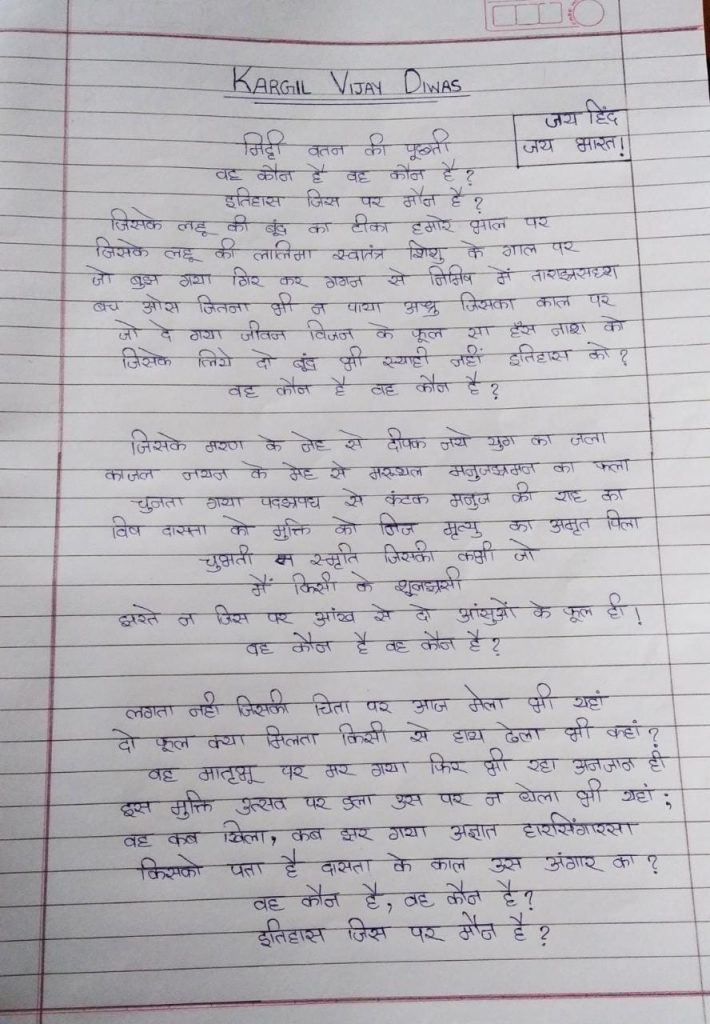 KARGIL VIJAY DIWAS
जय हिंद
जय भारत!
मिट्टी वतन की पूछती
वह कौन है वह कौन है?
इतिहास जिस पर मौन है?
जिसके लहू की बूंद का टीका हमारे भाल पर
जिसके लहू की लालिमा स्वातंत्र शिशु के गाल पर
जो बुझ गया गिर कर गगन से निमिष में ताराझसदृश
बच ओस जितना भी न पाया अश्रु जिसका काल पर
जो दे गया जीवन विजन के फूल सा हंस नाश को
जिसके लिये दो बूंद भी स्याही नहीं इतिहास को?
वह कौन है वह कौन है?
जिसके मरण के नेह से दीपक नये युग का जला
काजल नयन के मेह से मरुथल मनुजझमन का फला
चुनता गया पदझपथ से कंटक मनुज की राह का
विष दासता को मुक्ति को निज मृत्यु का अमृत पिला
चुभती न स्मृति जिसकी कभी जो
मैं किसी के शूलझसी
झरते न जिस पर आंख से दो आंसुओं के फूल ही!
वह कौन है वह कौन है?
लगता नही जिसकी चिता पर आज मेला भी यहां
दो फूल क्या मिलता किसी से हाथ ढेला भी कहां?
वह मातृभू पर मर गया फिर भी रहा अनजान ही
इस मुक्ति उत्सव पर डला उस पर न धेला भी यहां;
वह कब खिला, कब झर गया अज्ञात हारसिंगारसा
किसको पता है दासता के काल उस अंगार का?
वह कौन है, वह कौन है?
इतिहास जिस पर मौन है?